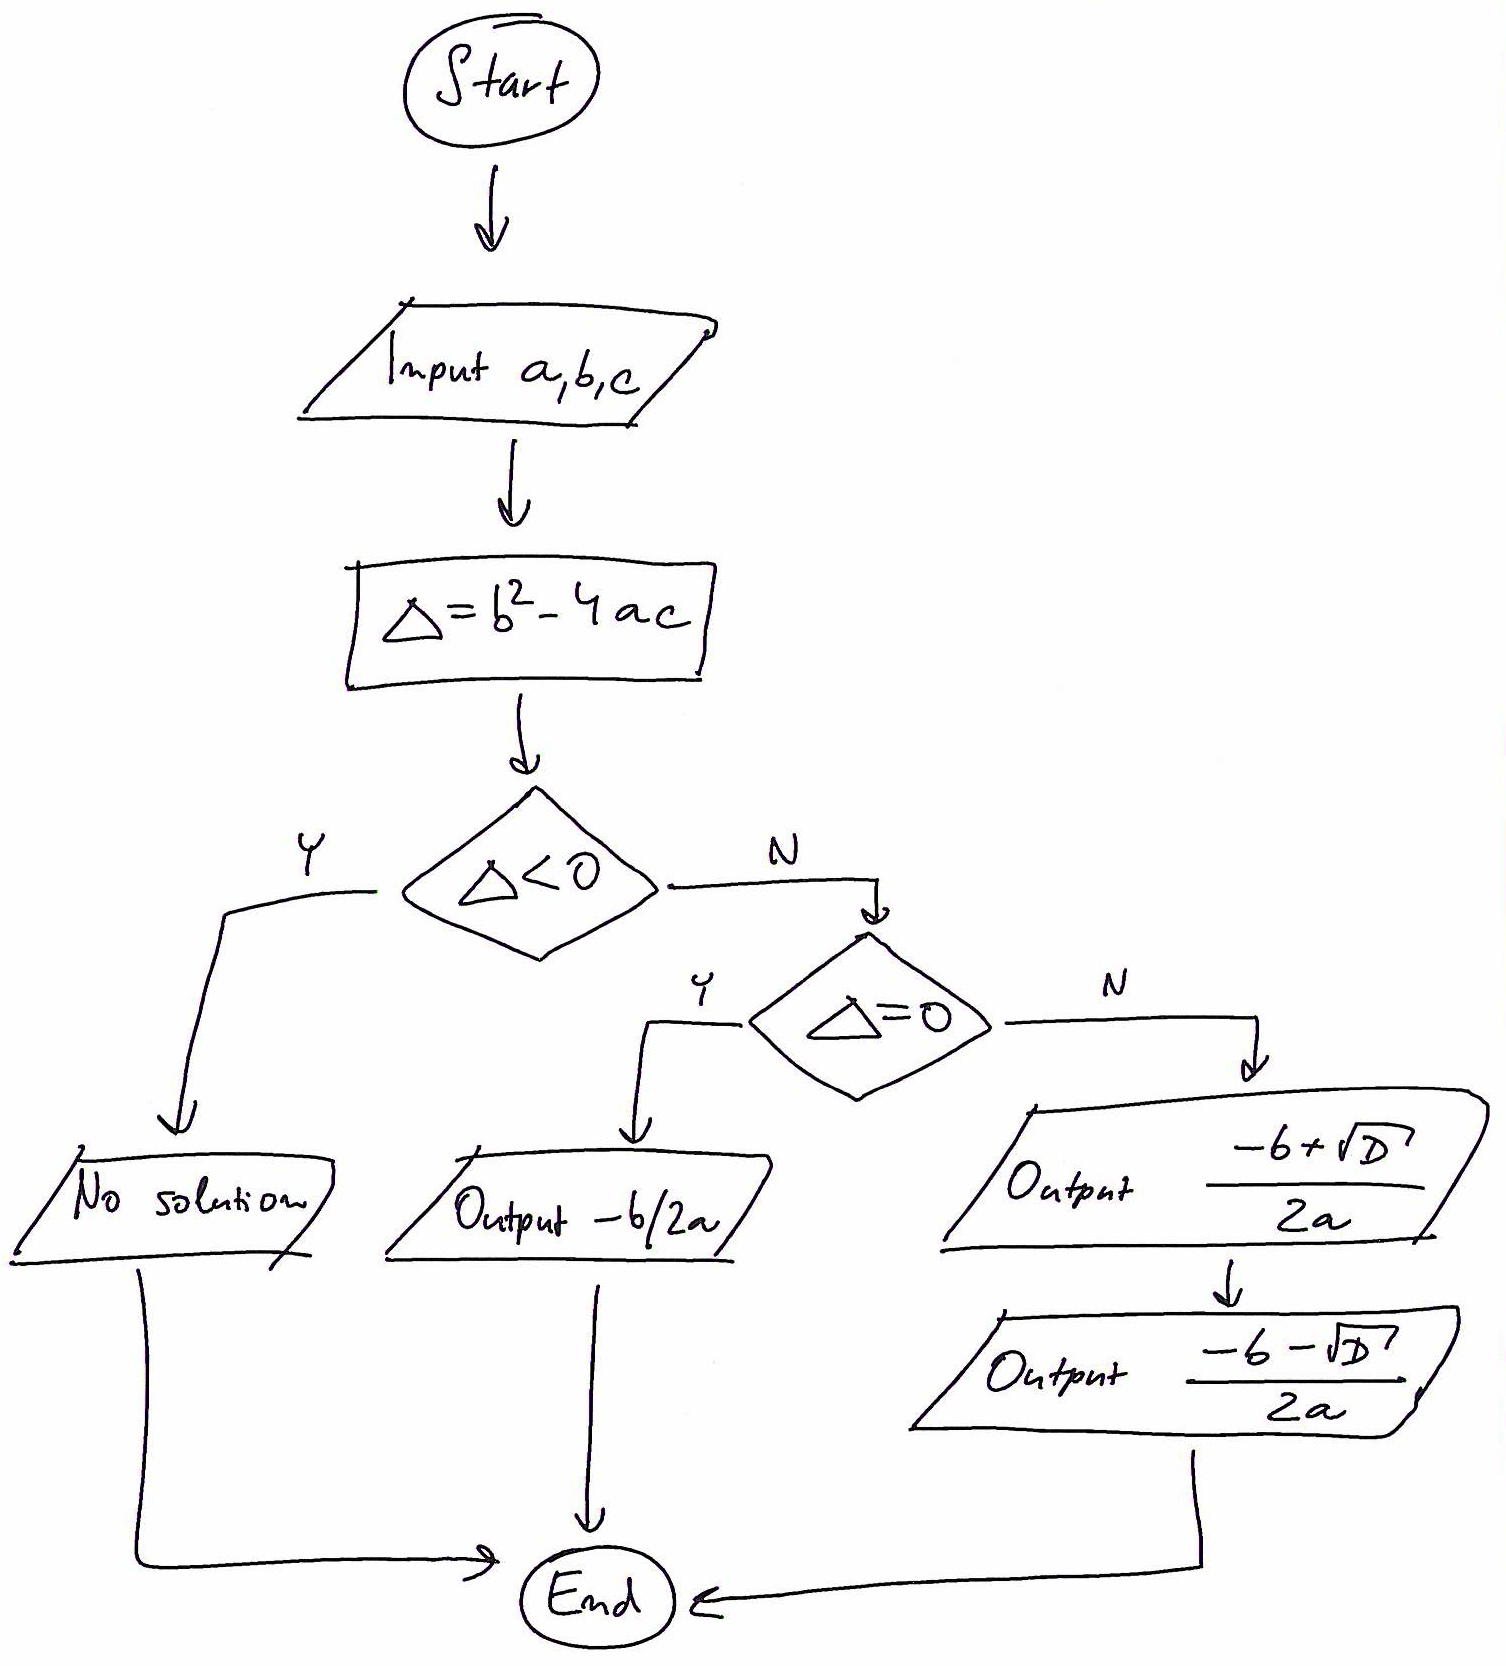 Start
Input a,b,c
△=b²-4ac
Y
△<0
N
Y
△=0
N
No solution
Output -b/2a
Output (-b+√D)/2a
Output (-b-√D)/2a
End